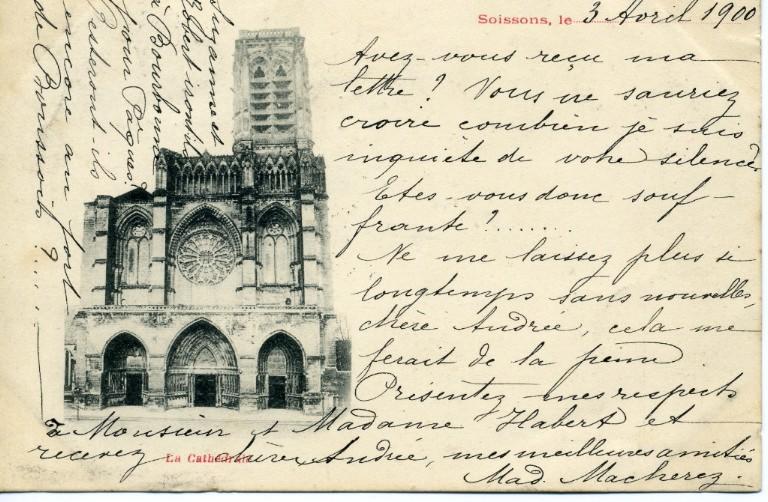 Soissons, le 3 Avril 1900
Avez-vous reçu ma
lettre ? Vous ne sauriez
croire combien je suis
inquiète de votre silence.
Etes-vous donc souf-
frante ?........
Ne me laissez plus si
longtemps sans nouvelles,
chère Andrée, cela me
ferait de la peine.
Présentez mes respects
à Monsieur et Madame Habert et
recevez, chère Andrée, mes meilleures amitiés
Mad. Macherez.
La Cathédrale
Suzanne et
Robert iront-ils
à Bourbonne
pour Pâques ?
Resteront-ils
encore au fort
de Boussois ?....